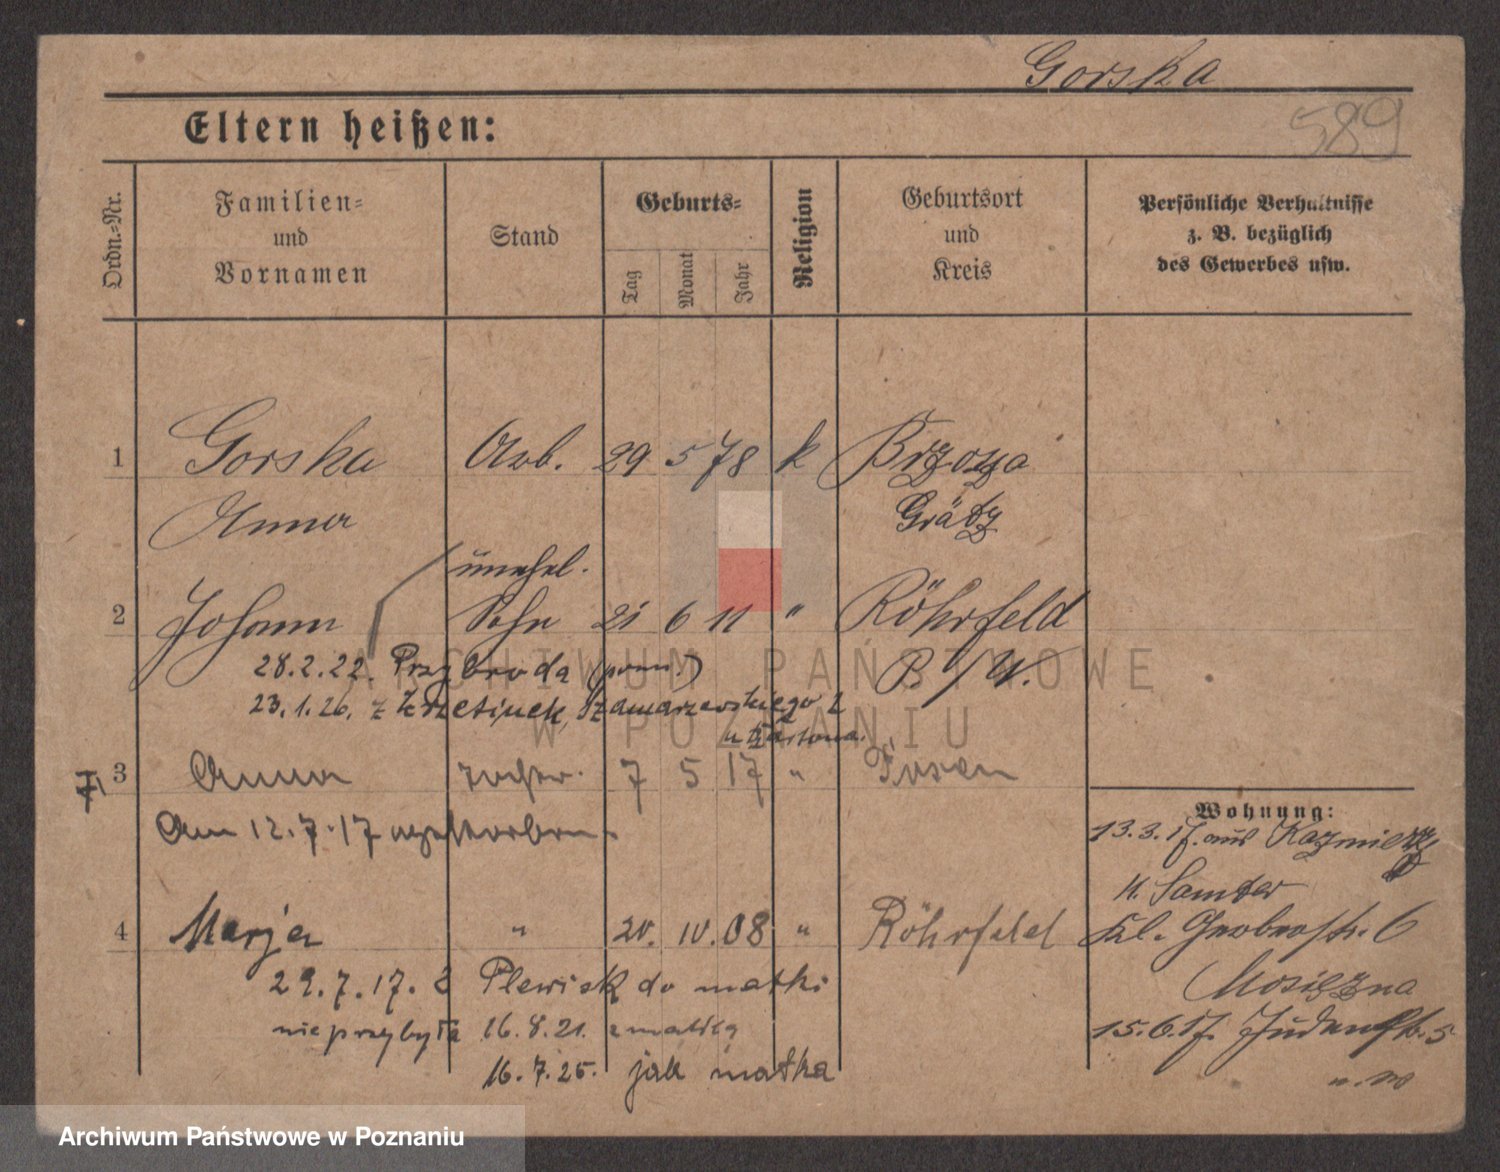 Gorska
589
Eltern heißen:
Ordn.-Nr.
Familien- und Vornamen
Stand
Geburts-
Tag
Monat
Jahr
Religion
Geburtsort und Kreis
Persönliche Verhältnisse
z. B. bezüglich
des Gewerbes usw.
1 Gorska Arb. 29 5 78 k Brzoza
Anna Grätz
unehel.
2 Johann Sohn 21 6 11 " Röhrfeld
28.2.22. Przybroda (pozn.) B/W.
23.1.26. z Krzesinek, Szamarzewskiego 2
u
3 Anna 7 5 17 " Posen
Am 12.7.17 verstorben.
Wohnung:
13.3.17. aus Kazmierz
K. Samter
4 Marja " 20. 10. 08 " Röhrfeld
Kl. Gerberstr. 6
29.7.17. z Plewisk do matki
Mosiężna
nie przybyła 16.8.21. z matką
15.6.17. Judenstr. 5
16.7.25. jak matka
ARCHIWUM PAŃSTWOWE
W POZNANIU
Archiwum Państwowe w Poznaniu